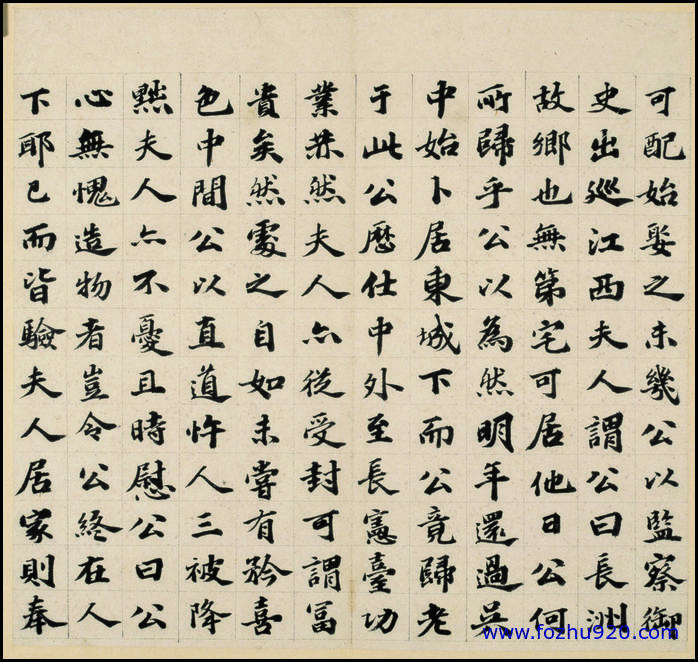 可配始娶之未幾公以監察御
史出巡江西夫人謂公曰長洲
故鄉也無第宅可居他日公何
所歸乎公以為然明年還過吳
中始卜居東城下而公竟歸老
于此公歷仕中外至長憲臺功
業赫然夫人亦從受封可謂冨
貴矣然處之自如未嘗有矜喜
色中間公以直道忤人三被降
黜夫人亦不憂且時慰公曰公
心無愧造物者豈令公終在人
下耶已而皆驗夫人居家則奉
www.fozhu920.com